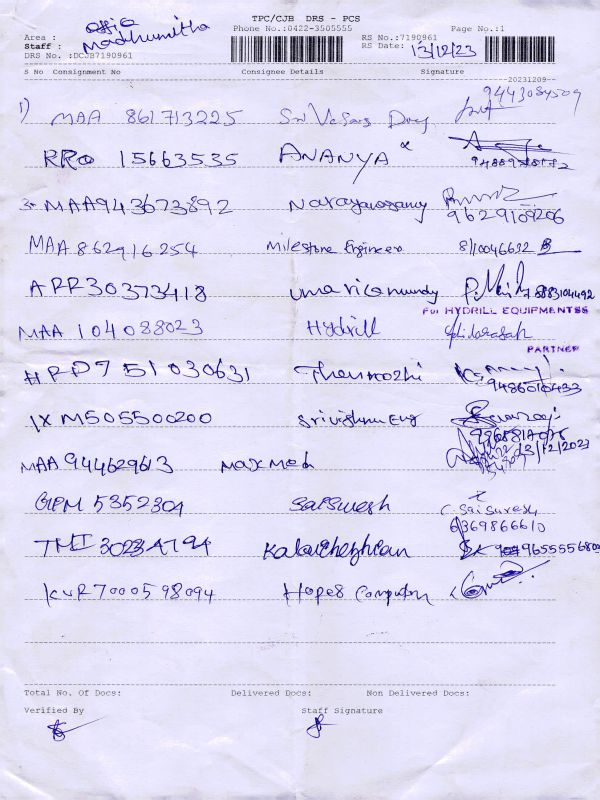 TPC/CJB DRS - PCS
Office
Area :
Phone No.:0422-3505555
RS No.:7190961
Page No.:1
Staff : Madhumitha
RS Date: 13/12/23
DRS No. :DCJB7190961
S No Consignment No Consignee Details Signature
20231209
1) MAA 861713225 Sri 9443084509
RRO 15663535 ANANYA
3 MAA943673892 Narayanasamy 9629109206
MAA 862916254 Milestone Engineer 8110046632
ARR30373418 8883104492
For HYDRILL EQUIPMENTSS
MAA 104088023 Hydrill
PARTNER
HRP751030631 Thenmozhi
9486010433
IXM505500200 Srivishnu Eng
13/12/2023
MAA 944629613 Maxmed
GPM 5352304 SaiSuresh C. SaiSuresh
6369866610
TMI 30234794 Kalaichezhian
KUR7000598094 Hopes Computer
Total No. Of Docs: Delivered Docs: Non Delivered Docs:
Verified By Staff Signature